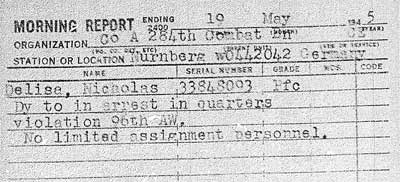 MORNING REPORT ENDING 2400 19 May 1945
ORGANIZATION Co A 284th Combat Bn CE
STATION OR LOCATION Nurnberg wO442042 Germany
NAME SERIAL NUMBER GRADE MOS. CODE
Delisa, Nicholas 33848093 Pfc
Dy to in arrest in quarters
violation 96th AW.
No limited assignment personnel.